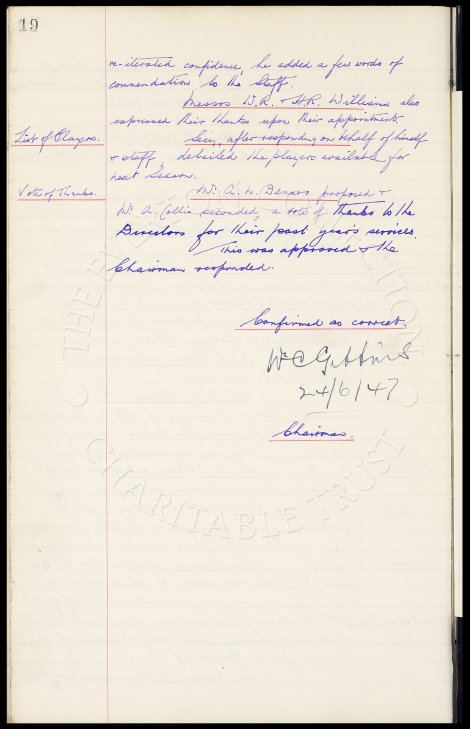 19
re-iterated confidence, he added a few words of
commendation to the Staff.
Messrs W.R. & H.R. Williams also
expressed their thanks upon their appointments
List of Players.
Secy, after responding on behalf of himself
& staff, detailed the players available for
next Season.
Vote of Thanks.
Mr. A. W. Denaro proposed &
Mr. A. Collis seconded, a vote of thanks to the
Directors for their past year's services.
This was approved & the
Chairman responded.
Confirmed as correct.
Wm C Gibbins
24/6/47
Chairman.
THE EVERTON COLLECTION
CHARITABLE TRUST